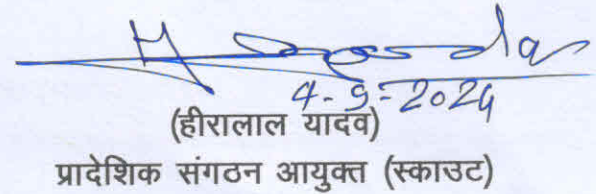 4-9-2024
(हीरालाल यादव)
प्रादेशिक संगठन आयुक्त (स्काउट)